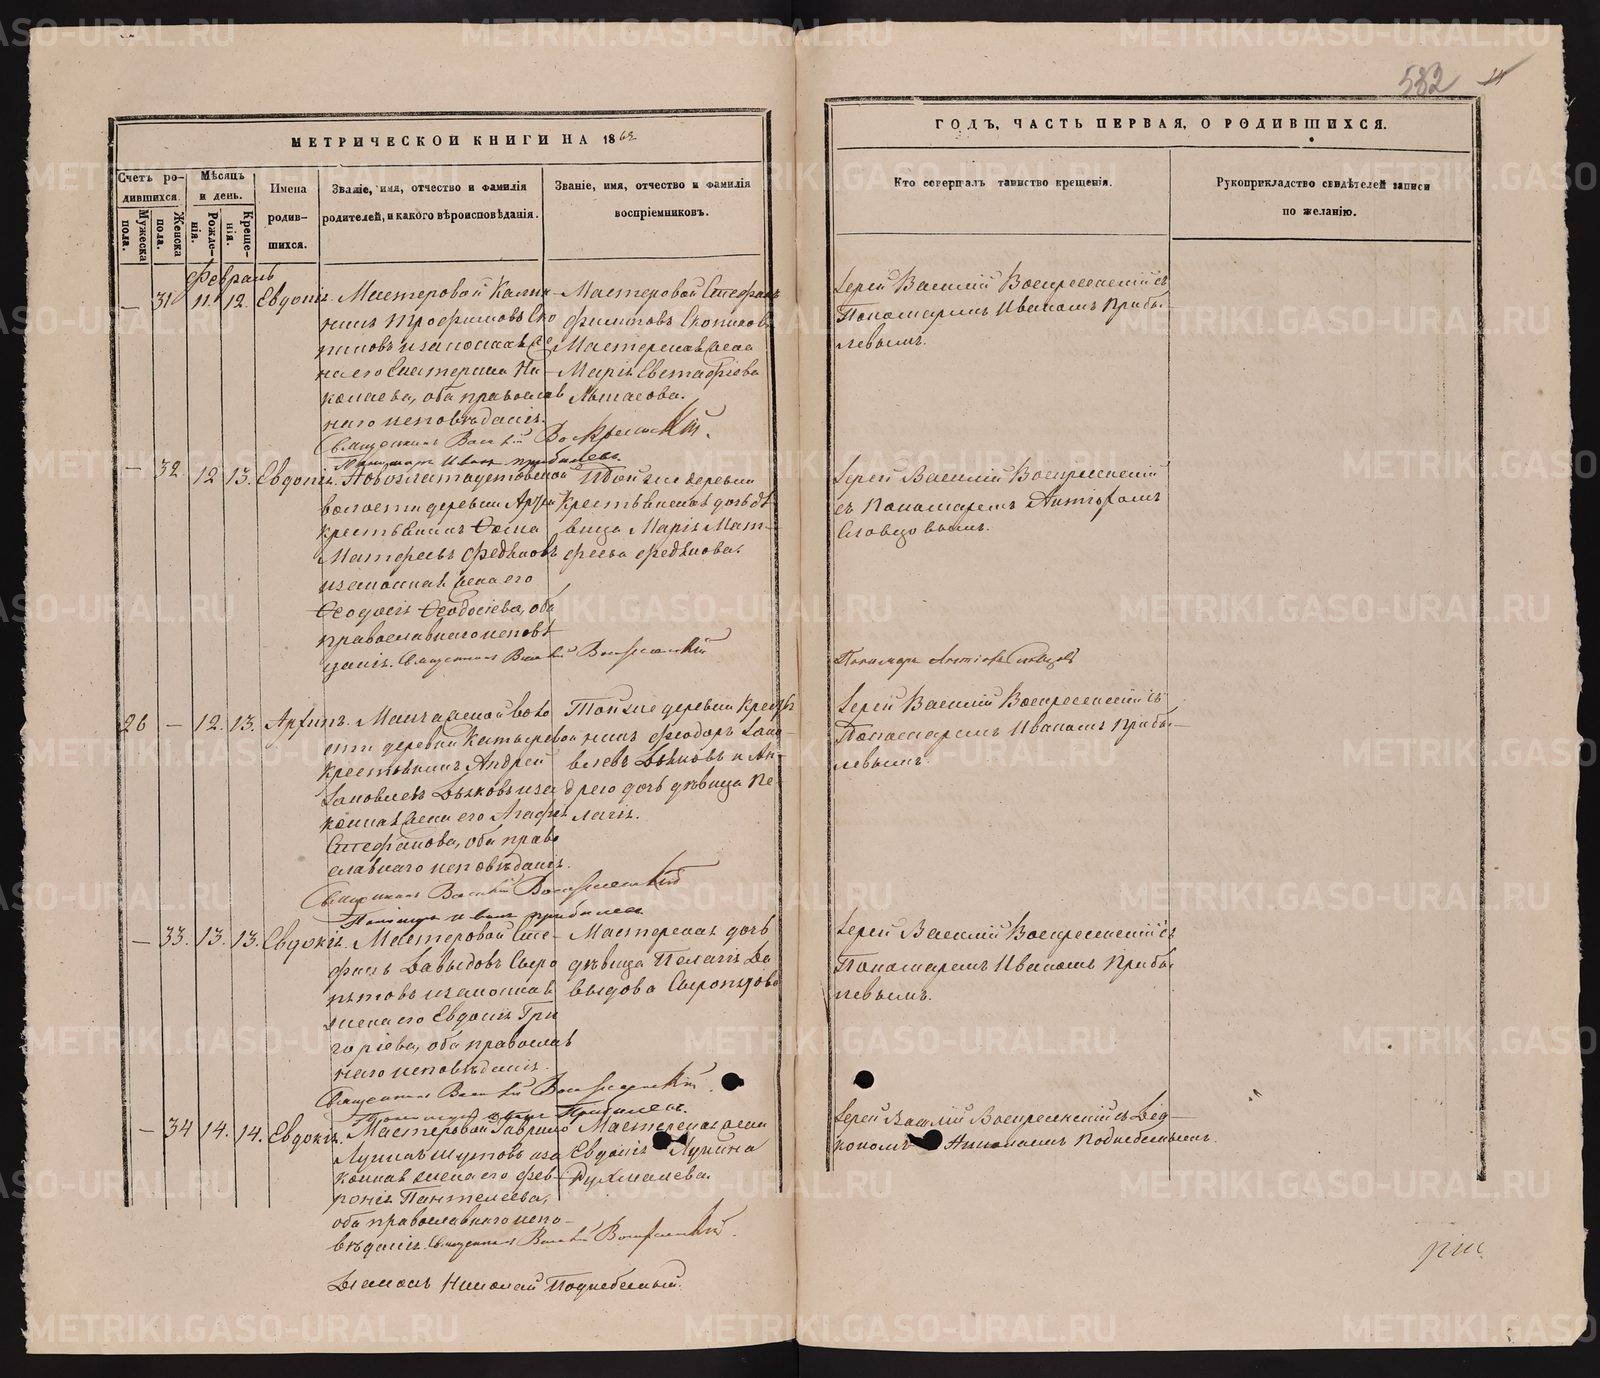 582
МЕТРИЧЕСКОЙ КНИГИ НА 1862
ГОДЪ, ЧАСТЬ ПЕРВАЯ, О РОДИВШИХСЯ.
Счетъ ро-
дившихся.
Мужеска
пола.
Женска
пола.
Мѣсяцъ
и день.
Рожде-
нія.
Креще-
нія.
Имена
родив-
шихся.
Званіе, имя, отчество и фамилія
родителей, и какого вѣроисповѣданія.
Званіе, имя, отчество и фамилія
воспріемниковъ.
Кто совершалъ таинство крещенія.
Рукоприкладство свидѣтелей записи
по желанію.
Февраль
— 31 11. 12. Евдокія.
Мастеровой Калин-
никъ Трофимовъ Ско
пиновъ и законная же
на его Екатерина Ни-
колаева, оба православ
наго исповѣданія.
Священникъ Василій Воскресенскій.
Пономарь Иванъ Прибылевъ.
Мастеровой Стефанъ
Филиповъ
Мастерская жена
Марія Евстафіева
Іерей Василій Воскресенскій съ
Пономаремъ Иваномъ Прибы-
левымъ.
— 32. 12 13. Евдокія.
Новозлатоустовской
волости деревни
крестьянинъ Ѳома
Матѳеевъ Федяковъ
и законная жена его
Ѳеодосія Ѳеодосіева, оба
православнаго исповѣ
данія. Священникъ Василій Воскресенскій
Той же деревни
Крестьянская дочь дѣ
вица Марія Мат-
феева Федякова.
Іерей Василій Воскресенскій
съ Пономаремъ Антіофомъ
Словцовымъ.
Пономарь Антіофъ Словцовъ
26 — 12. 13. Архипъ.
Манчажской воло
сти деревни Катыревой
крестьянинъ Андрей
Іаковлевъ Быковъ и за
конная жена его Агафья
Стефанова, оба право
славнаго исповѣданія.
Священникъ Василій Воскресенскій
Пономарь Иванъ Прибылевъ
Той же деревни Кресть
нинъ Феодоръ Іако-
влевъ Быковъ и Ан-
дрею дочь дѣвица Пе-
лагія.
Іерей Василій Воскресенскій съ
Пономаремъ Иваномъ Прибы-
левымъ.
— 33. 13. 13. Евдокія.
Мастеровой Сте-
фанъ Давыдовъ Сыро
пятовъ и законная
жена его Евдокія Гри
горіева, оба православ
наго исповѣданія.
Священникъ Василій Воскресенскій.
Пономарь Иванъ Прибылевъ.
Мастерская дочь
дѣвица Пелагія Да
выдова Сыропятова
Іерей Василій Воскресенскій съ
Пономаремъ Иваномъ Прибы-
левымъ.
— 34 14. 14. Евдокія.
Мастеровой Гаврило
и за
конная жена его Фев-
ронія Пантелеева,
оба православнаго испо-
вѣданія. Священникъ Василій Воскресенскій.
Діаконъ Николай Поднебесный.
Мастерская жена
Евдокія Лукина
Рухмалева.
Іерей Василій Воскресенскій съ Діа-
кономъ Николаемъ Поднебеснымъ.
METRIKI.GASO-URAL.RU